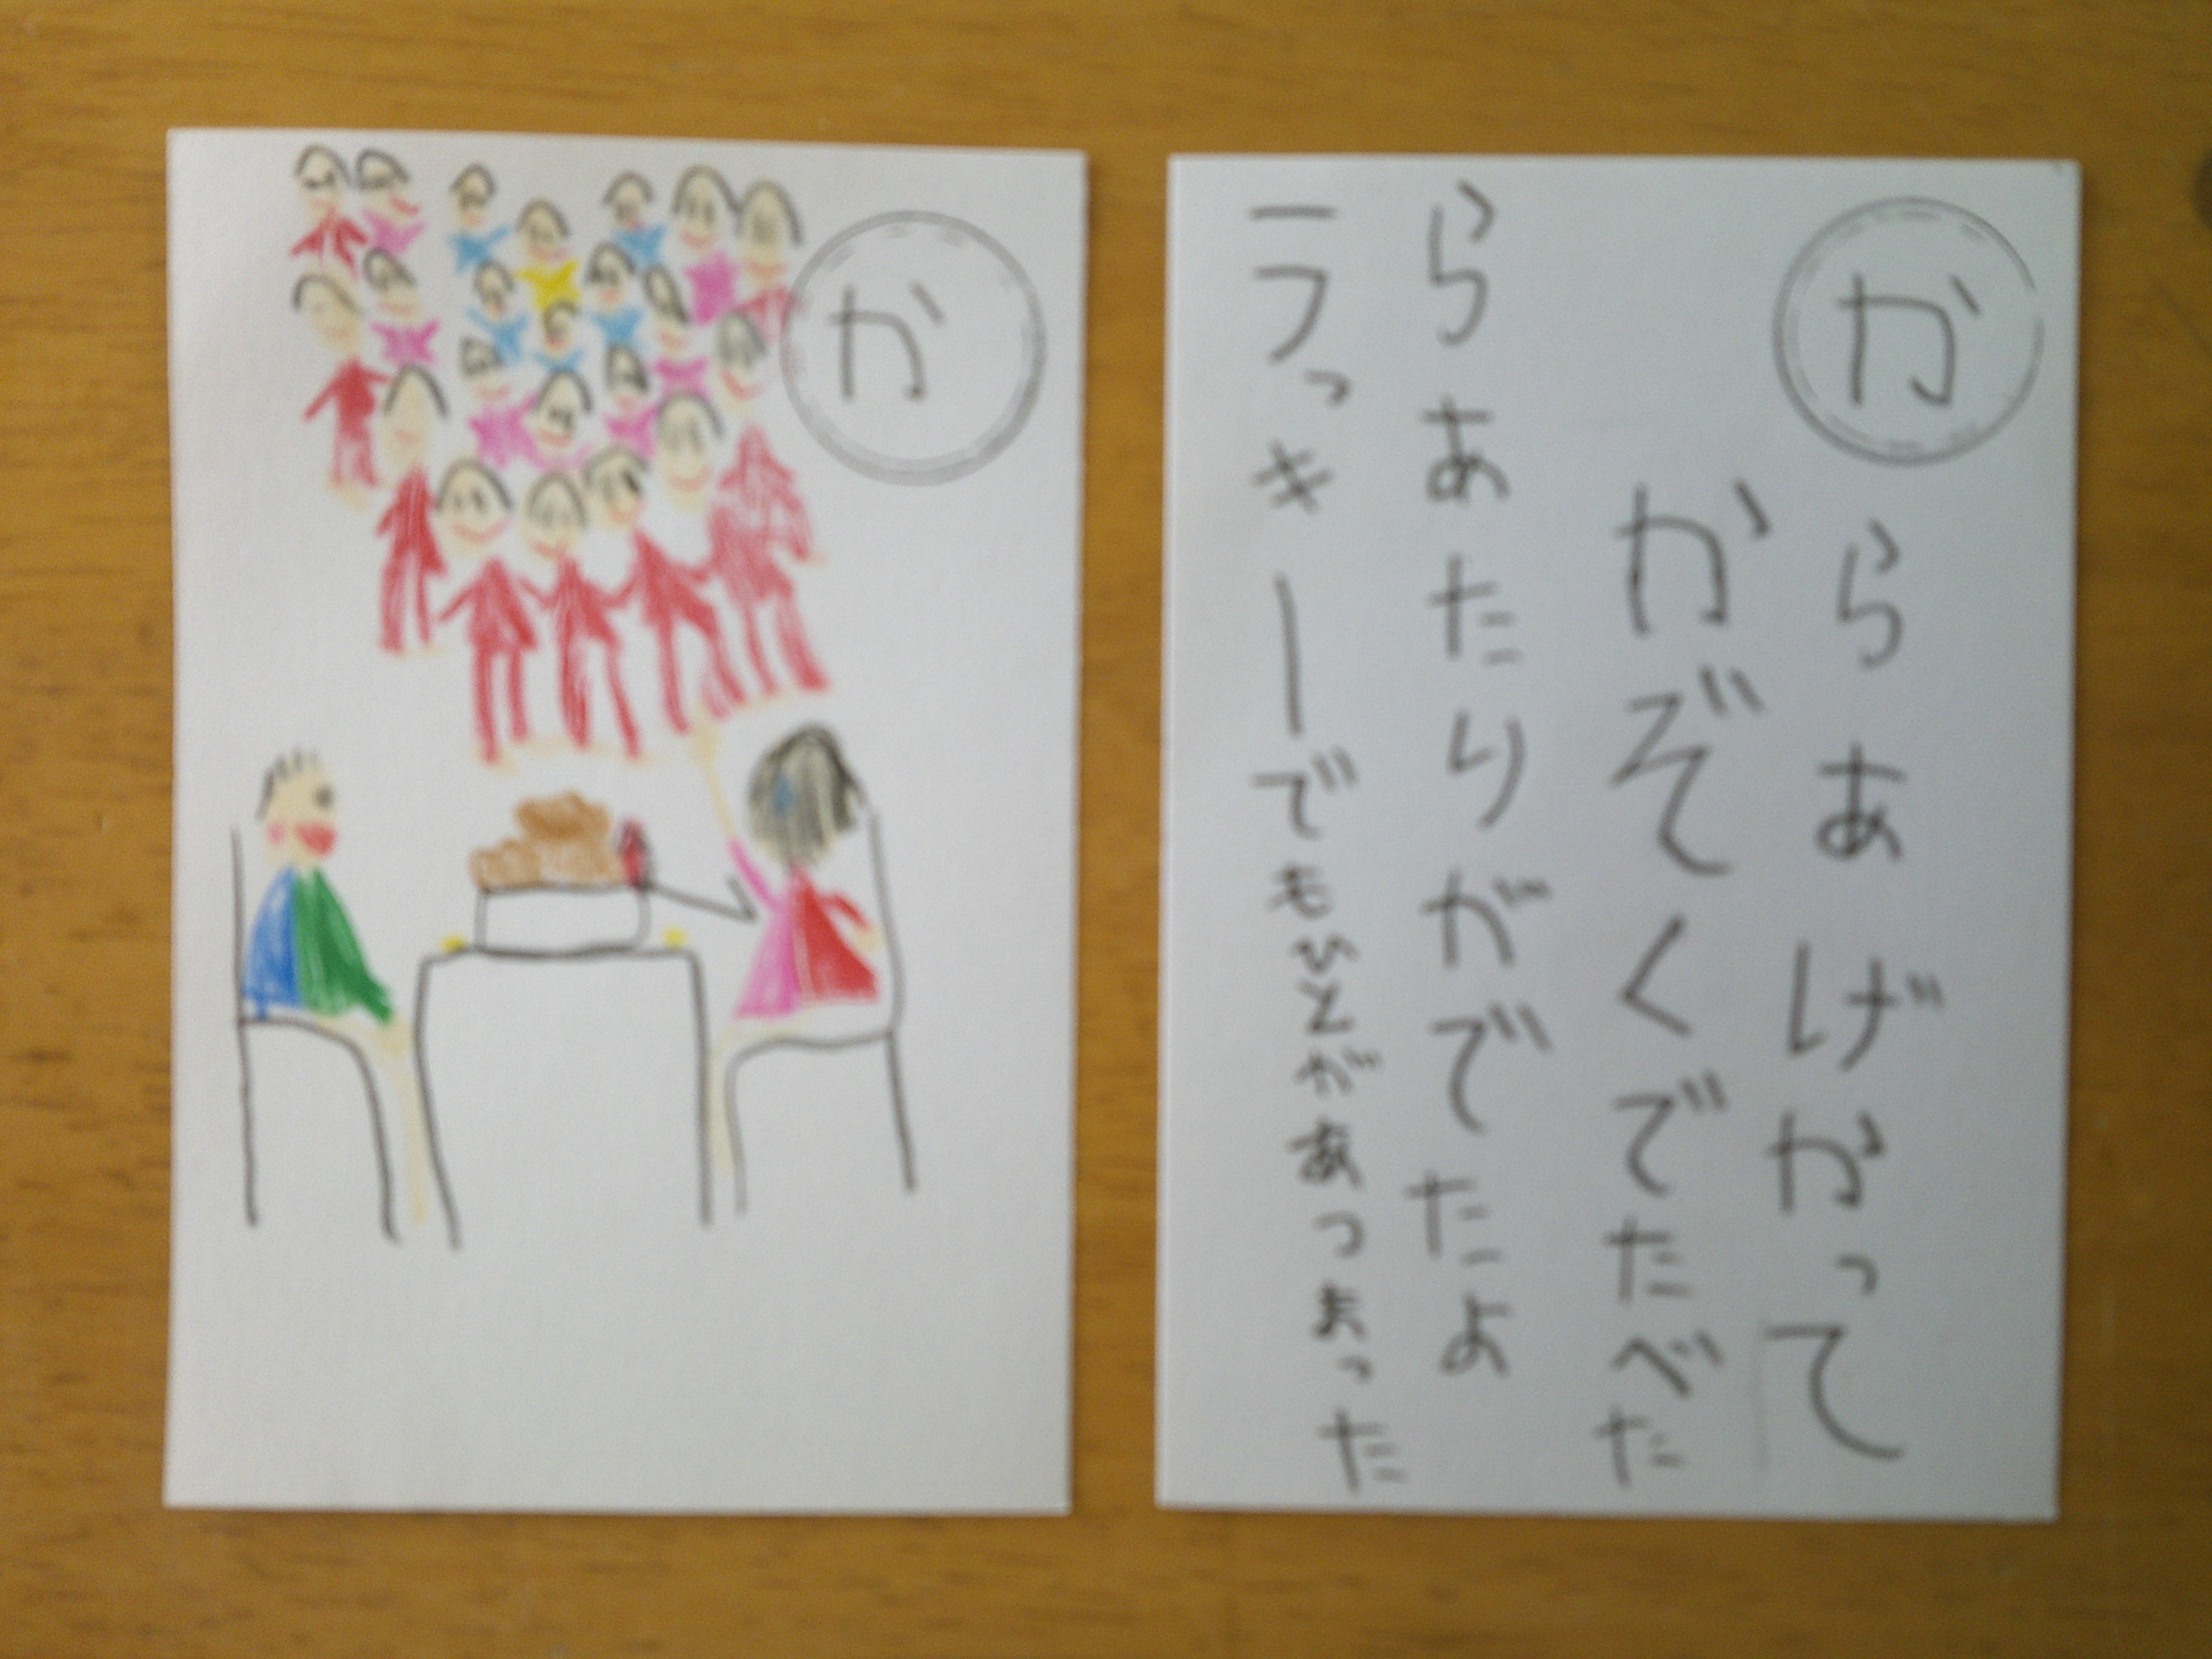 か
か
らあげかって
かぞくでたべた
らあたりがでたよ
ラっキーでもひとがあつまった